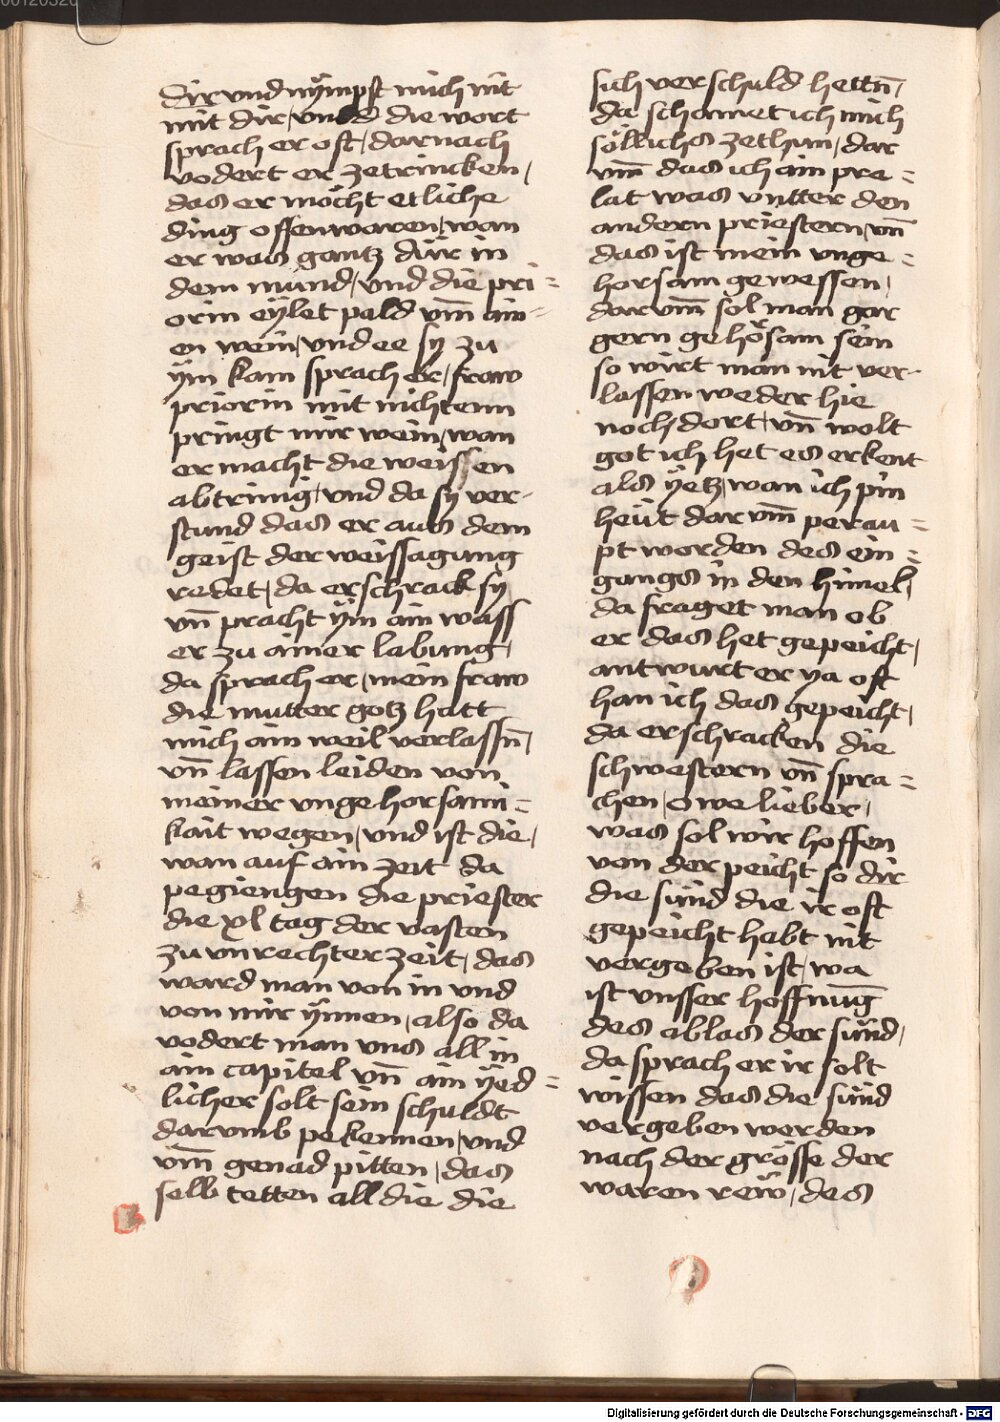 dir vnd nÿmpst mich nit
mit dir / vnd die wort
sprach er oft / darnach
vodert er zetrincken /
das er möcht etliche
ding offenwaren / wan
er was gantz dürr in
dem mund / vnd die pri=
orin eÿlet pald vm̄ ain=
en wein / vnd ee sy zu
ÿm kam sprach er / fraw
priorin mit nichtenn
pringt mir wein / wan
er macht die weissen
abtrinig / vnd da sy ver-
stund das er aus dem
geist der weissagung
redet / da erschrack sy
vn̄ pracht ÿm ain wass
er zu ainer labung /
da sprach er / mein fraw
die mutter gotz hatt
mich ain weil verlassn̄ /
vn̄ lassen leiden von
meiner vngehorsami=
kait wegen / vnd ist die /
wan auf ain zeit da
pegiengen die priester
die xl tag der vasten
zu vnrechter zeit / das
ward man von in vnd
von mir ÿnnen / also da
vodert man vns all in
ain capitel vn̄ ain ÿed=
licher solt sein schuldt
darvmb pekennen / vnd
vm̄ genad pitten / das
selb tetten all die die
sich verschuld hettn̄ /
da schamet ich mich
söllichs zethun / dar
vm̄ das ich ain pre=
lat was vntter den
andern priestern / vn̄
das ist mein vnge=
horsam gewessen /
darvm̄ sol man gar
gern gehörsam sein
so wirt man nit ver-
lassen weder hie
noch dort / vn̄ wolt
got ich het es erkent
als ÿetz / wan ich pin
heüt darvm̄ perau=
pt worden des ein=
gangs in den himel /
da fraget man ob
er das het gepeicht /
antwurt er ya oft
han ich das gepeicht /
da erschracken die
schwestern vn̄ spra=
chen / o we lieber /
was sol wir hoffen
von der peicht so dir
die sünd die ir oft
gepeicht habt nit
vergeben ist / wa
ist vnsser hoffnūg
des ablas der sünd /
da sprach er ir solt
wissen das die sünd
vergeben werden
nach der grösse der
waren rew̆ / des
Digitalisierung gefördert durch die Deutsche Forschungsgemeinschaft - DFG